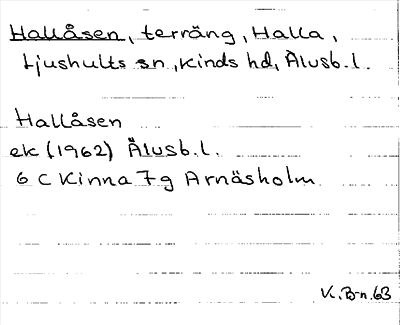 Hallåsen, terräng, Halla,
Ljushults sn, Kinds hd, Älvsb. l.
Hallåsen
ek (1962) Älvsb. l.
6 C Kinna 7g Arnäsholm
V. B-n. 63